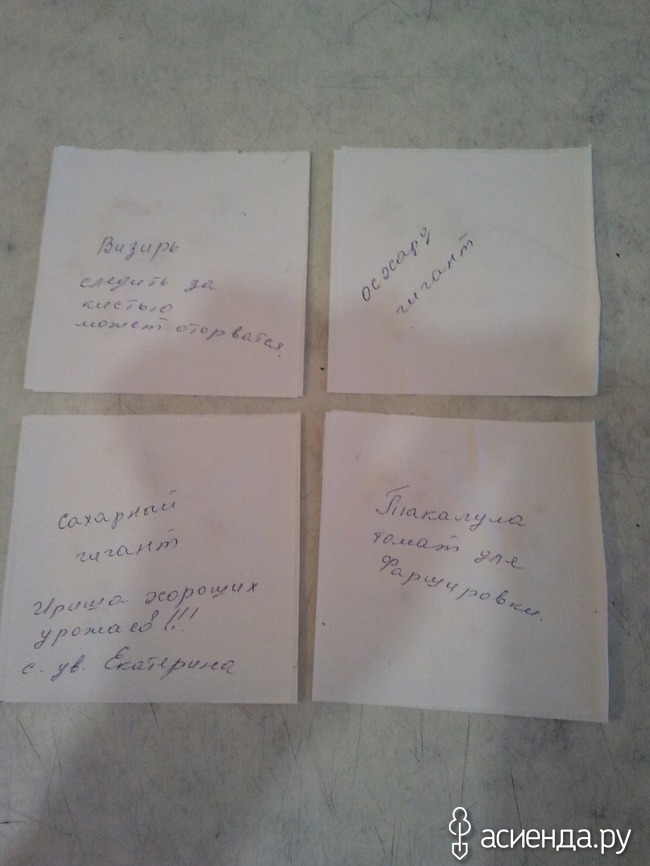 Визирь
следить за
кистью
может оторватся.
гигант
Сахарный
гигант
Ириша хороших
урожаев!!!
с. ув. Екатерина
Такалула
томат для
Фаршировки.
асиенда.ру